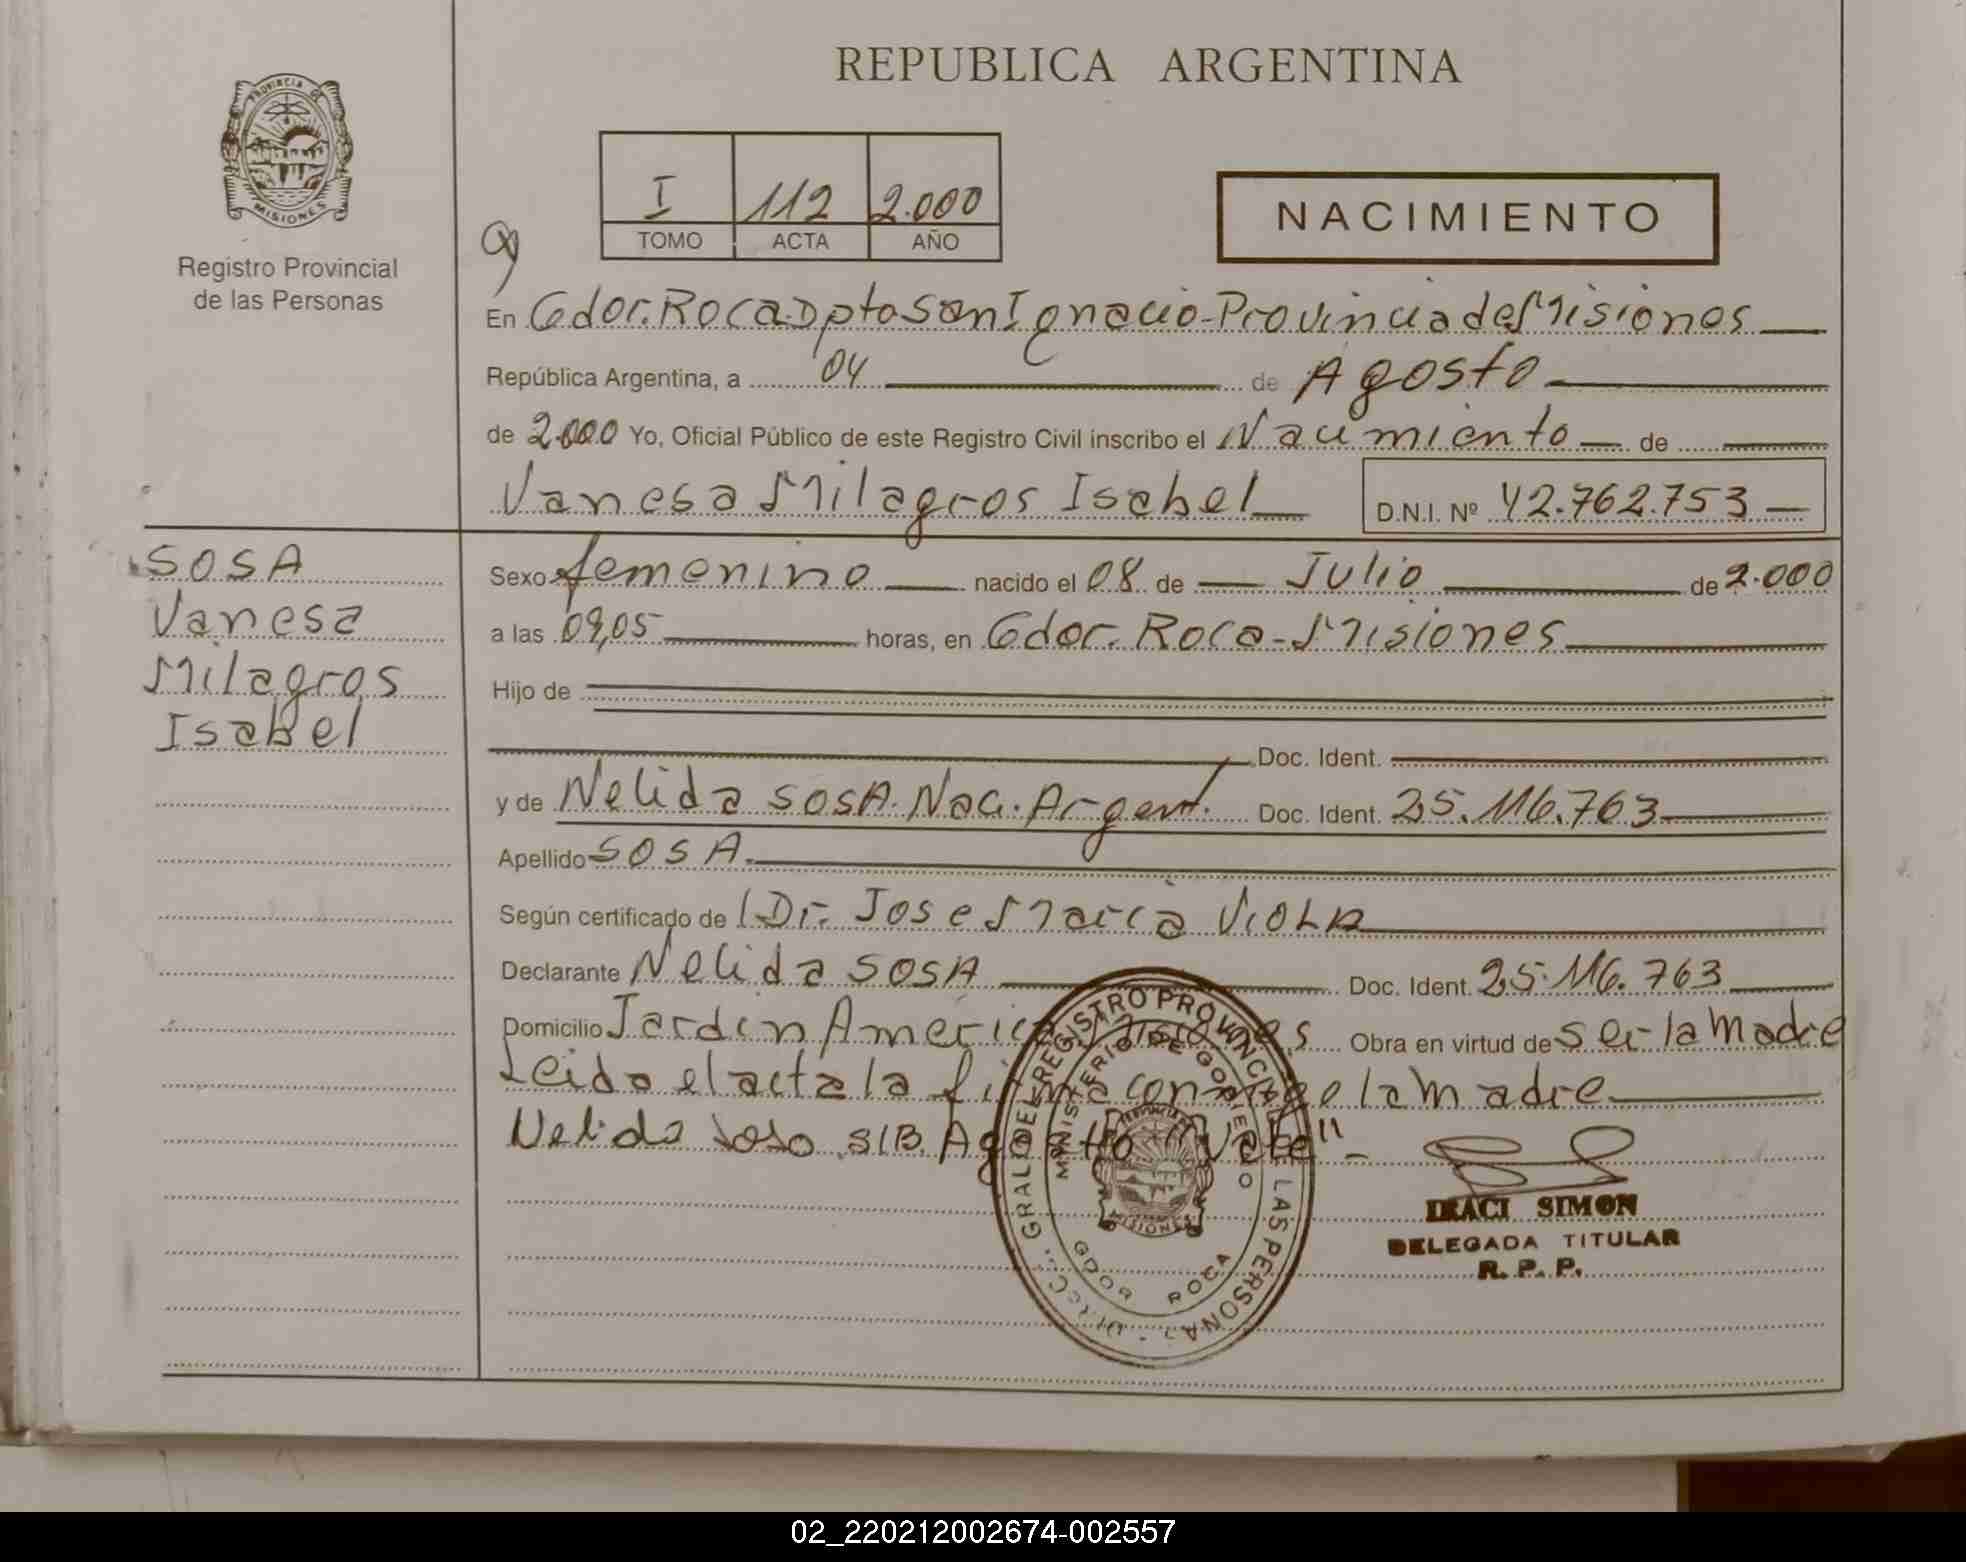 REPUBLICA ARGENTINA
PROVINCIA DE
MISIONES
Registro Provincial
de las Personas
I 112 2.000
TOMO ACTA AÑO
NACIMIENTO
En Gdor. Roca Dpto San Ignacio - Provincia de Misiones
República Argentina, a 04 de Agosto
de 2.000 Yo, Oficial Público de este Registro Civil inscribo el Nacimiento de
Vanesa Milagros Isabel D.N.I. Nº 42.762.753
SOSA
Vanesa
Milagros
Isabel
Sexo femenino nacido el 08 de Julio de 2.000
a las 09,05 horas, en Gdor. Roca - Misiones
Hijo de
Doc. Ident.
y de Nelida SOSA. Nac. Argent. Doc. Ident. 25.116.763
Apellido SOSA.
Según certificado de Dr. Jose Maria VIOLA
Declarante Nelida SOSA Doc. Ident. 25.116.763
Domicilio Jardin America Misiones Obra en virtud de ser la Madre
Leida el acta la firma conmigo la Madre
Nelida Soso S/B. "Vale"
DIRECC. GRAL DEL REGISTRO PROVINCIAL DE LAS PERSONAS
MINISTERIO DE GOBIERNO
PROVINCIA
MISIONES
GDOR ROCA
IRACI SIMON
DELEGADA TITULAR
R. P. P.
02_220212002674-002557